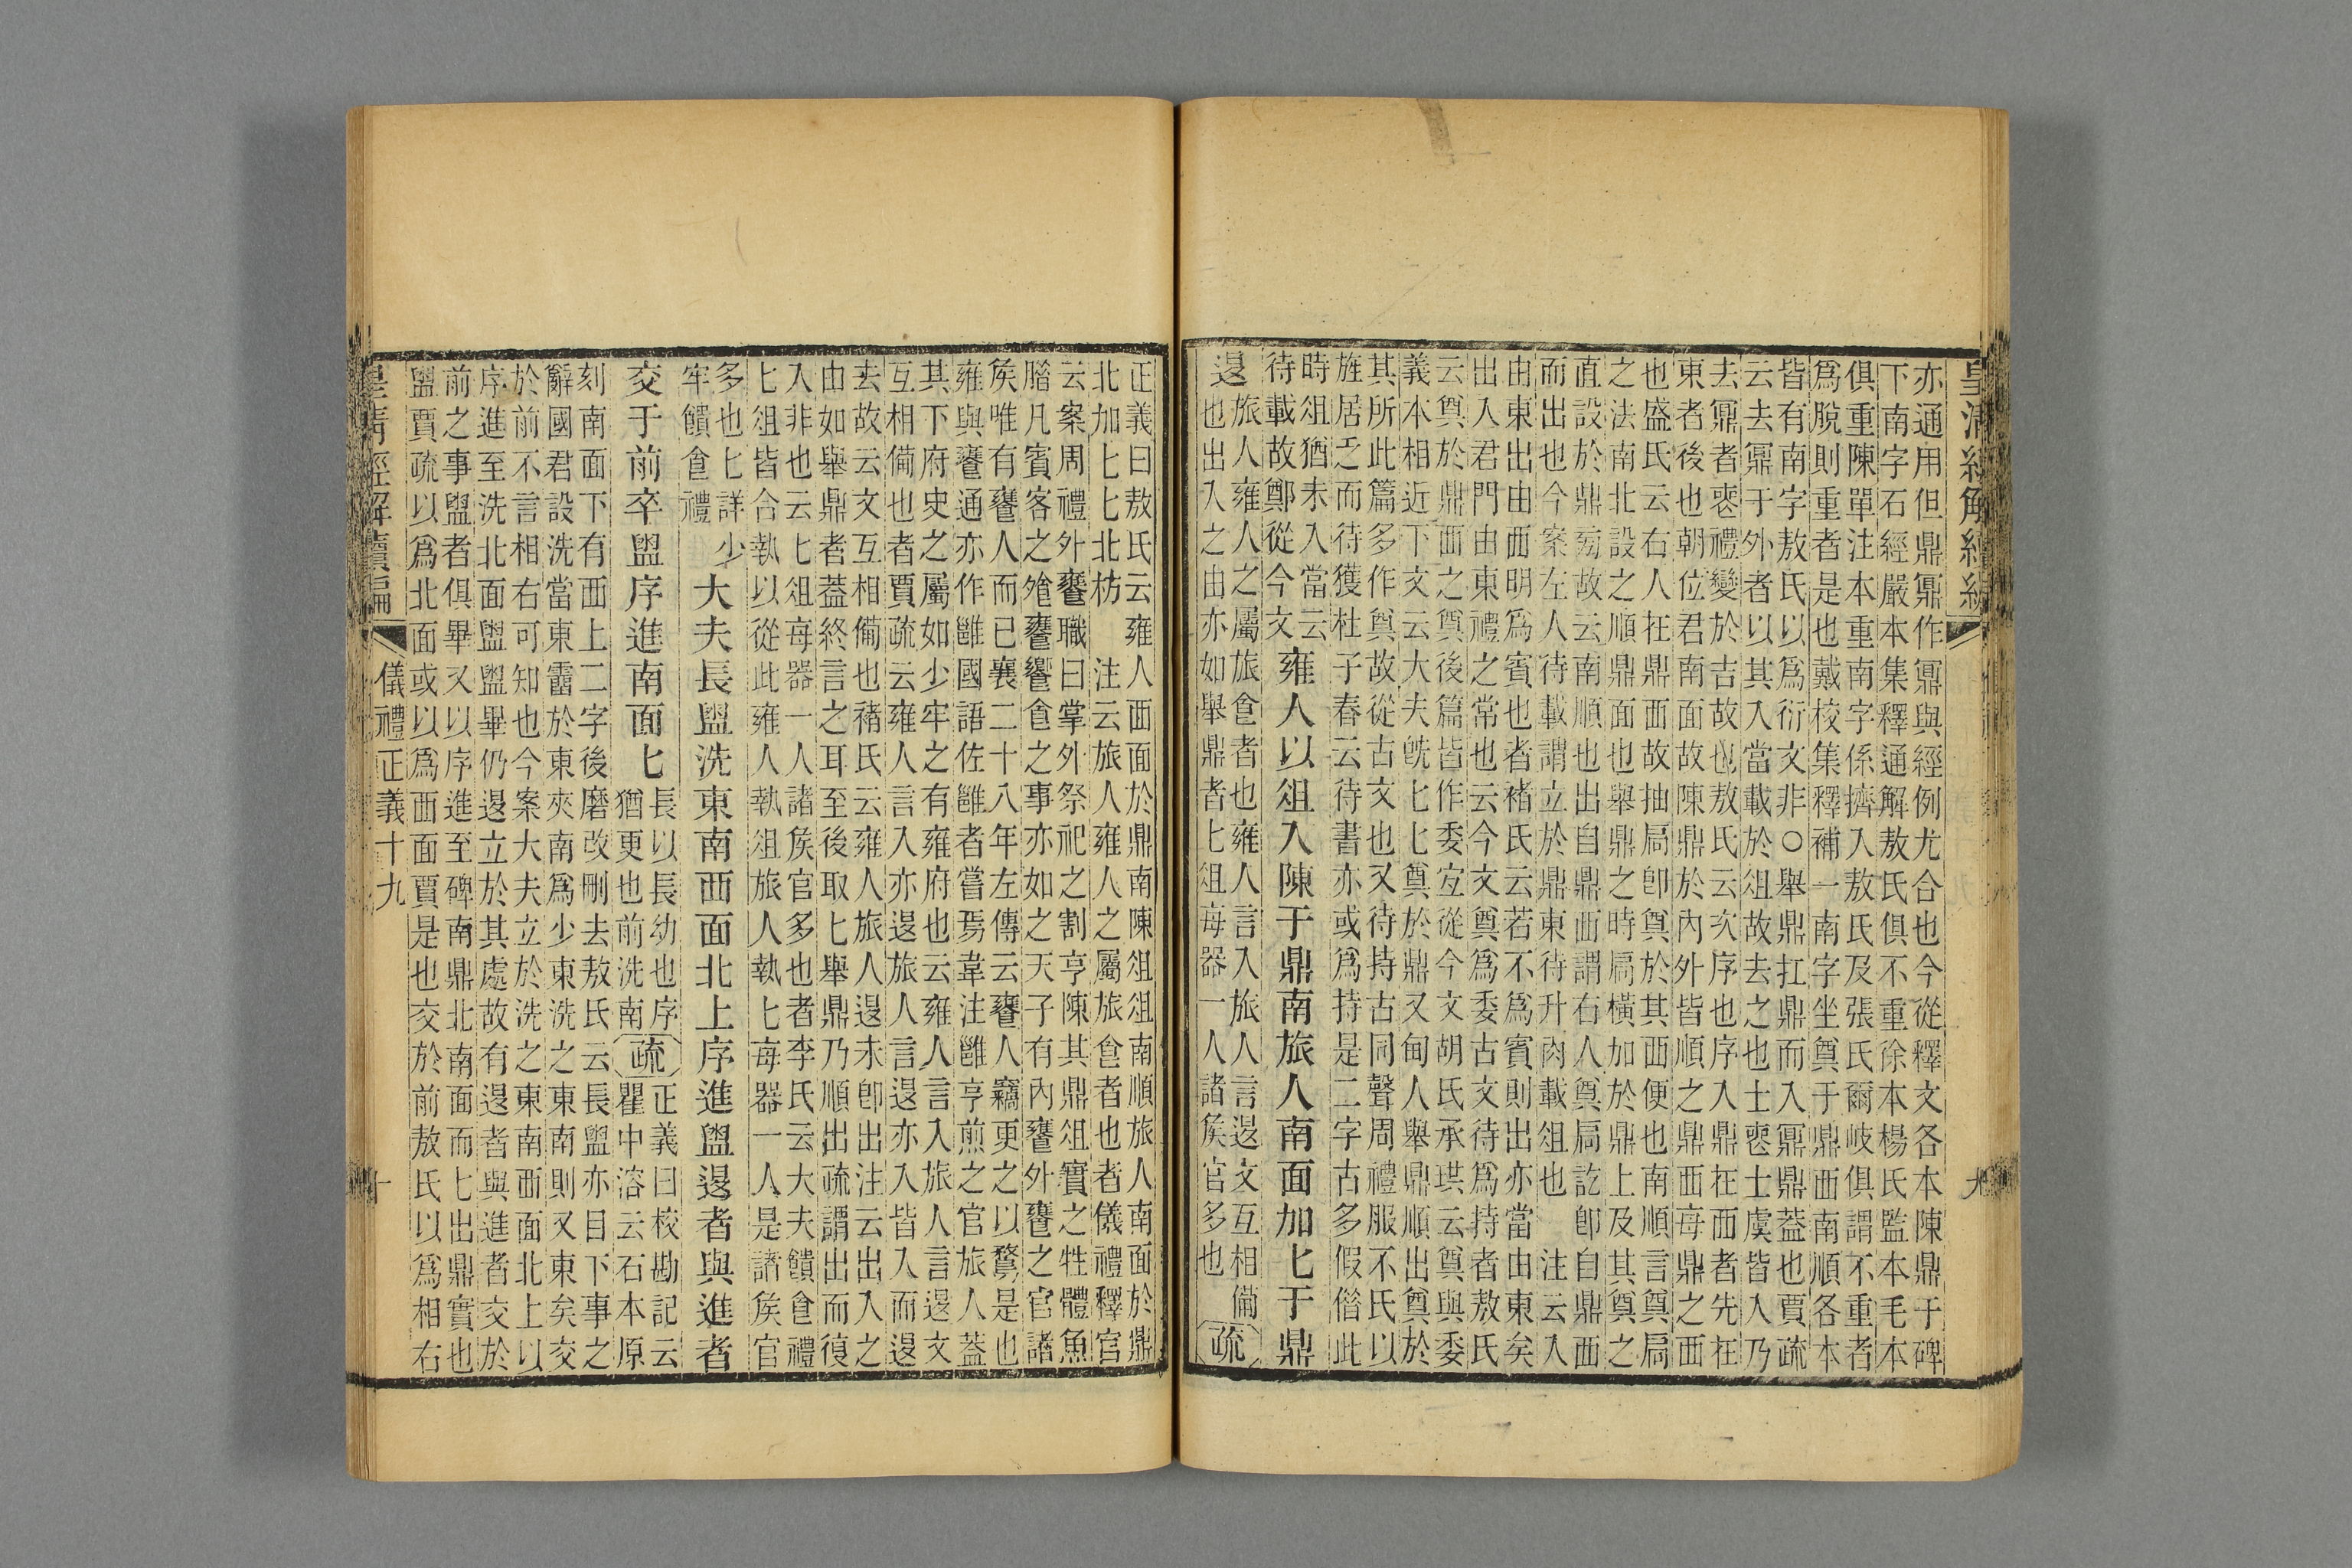 皇清經解續編
亦通用但鼎鼏作鼏與經例尤合也今從釋文各本陳鼎于碑
下南字石經嚴本集釋通解敖氏俱不重徐本楊氏監本毛本
俱重陳單注本重南字係擠入敖氏及張氏爾岐俱謂不重者
爲脫則重者是也戴校集釋補一南字坐奠于鼎西南順各本
皆有南字敖氏以爲衍文非○舉鼎扛鼎而入鼏鼎蓋也賈疏
云去鼏于外者以其入當載於俎故去之也士喪士虞皆入乃
去鼏者喪禮變於吉故也敖氏云次序也序入鼎在西者先在
東者後也朝位君南面故陳鼎於內外皆順之鼎西每鼎之西
也盛氏云右人在鼎西故抽扃卽奠於其西便也南順言奠扃
之法南北設之順鼎面也舉鼎之時扃橫加於鼎上及其奠之
直設於鼎菊故云南順也出自鼎西謂右人奠扃訖卽自鼎西
而出也今案左人待載謂立於鼎東待升肉載俎也　注云入
由東出由西明爲賓也者褚氏云若不爲賓則出亦當由東矣
出入君門由東禮之常也云今文奠爲委古文待爲持者敖氏
云奠於鼎西之奠後篇皆作委宜從今文胡氏承珙云奠與委
義本相近下文云大夫旣匕匕奠於鼎又甸人舉鼎順出奠於
其所此篇多作奠故從古文也又待持古同聲周禮服不氏以
旌居乏而待獲杜子春云待書亦或爲持是二字古多假偕此
時俎猶未入當云
待載故鄭從今文
雍人以俎入陳于鼎南旅人南面加匕于鼎
退
旅人雍人之屬旅食者也雍人言入旅人言退文互相備
也出入之由亦如舉鼎者匕俎每器一人諸侯官多也
疏
正義曰敖氏云雍人西面於鼎南陳俎俎南順旅人南面於鼎
北加匕匕北枋　注云旅人雍人之屬旅食者也者儀禮釋官
云案周禮外饔職曰掌外祭祀之割亨陳其鼎俎實之牲體魚
腊凡賓客之飧饔饗食之事亦如之天子有內饔外饔之官諸
侯唯有饔人而已襄二十八年左傳云饔人竊更之以鶩是也
雍與饔通亦作雝國語佐雝者嘗焉韋注雝亨煎之官旅人蓋
其下府史之屬如少牢之有雍府也云雍人言入旅人言退文
互相備也者賈疏云雍人言入亦退旅人言退亦入皆入而退
去故云文互相備也褚氏云雍人旅人退未卽出注云出入之
由如舉鼎者蓋終言之耳至後取匕舉鼎乃順出疏謂出而復
入非也云匕俎每器一人諸侯官多也者李氏云大夫饋食禮
匕俎皆合執以從此雍人執俎旅人執匕每器一人是諸侯官
多也匕詳少
牢饋食禮
大夫長盥洗東南西面北上序進盥退者與進者
交于前卒盥序進南面匕
長以長幼也序
猶更也前洗南
疏
正義曰校勘記云
瞿中溶云石本原
刻南面下有西上二字後磨改刪去敖氏云長盥亦目下事之
辭國君設洗當東霤於東夾南爲少東洗之東南則又東矣交
於前不言相右可知也今案大夫立於洗之東南西面北上以
序進至洗北面盥盥畢仍退立於其處故有退者與進者交於
前之事盥者俱畢又以序進至碑南鼎北南面而匕出鼎實也
盥賈疏以爲北面或以爲西面賈是也交於前敖氏以爲相右
皇清經解續編
儀禮正義十九